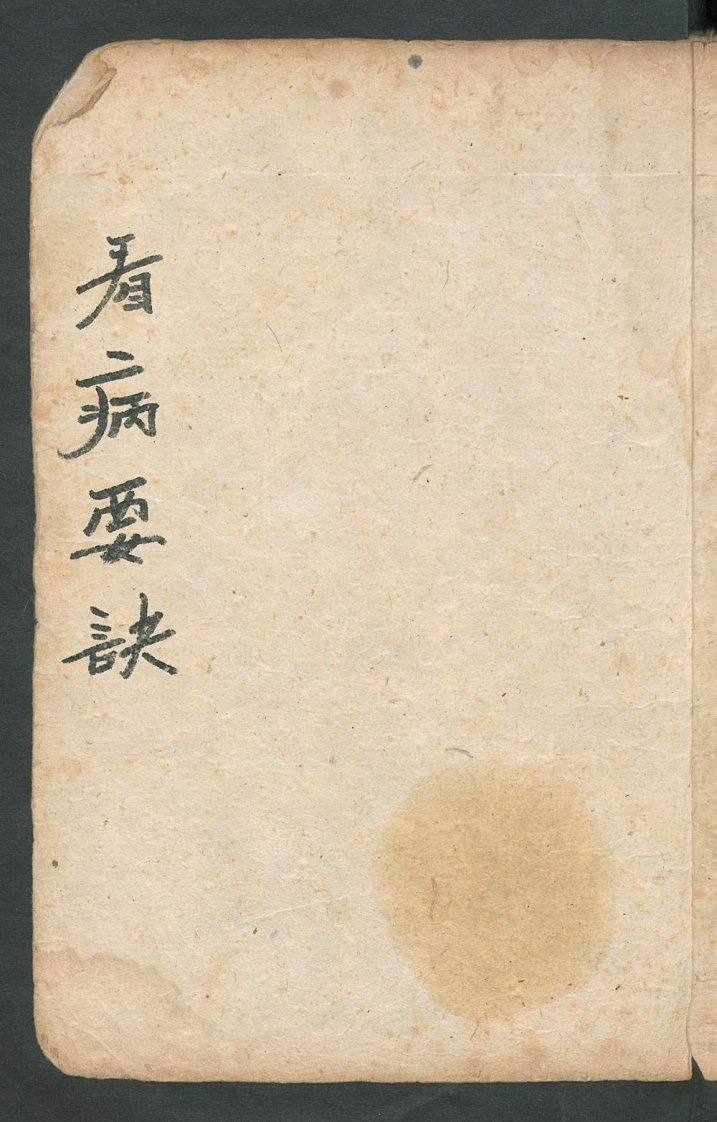 看病要訣